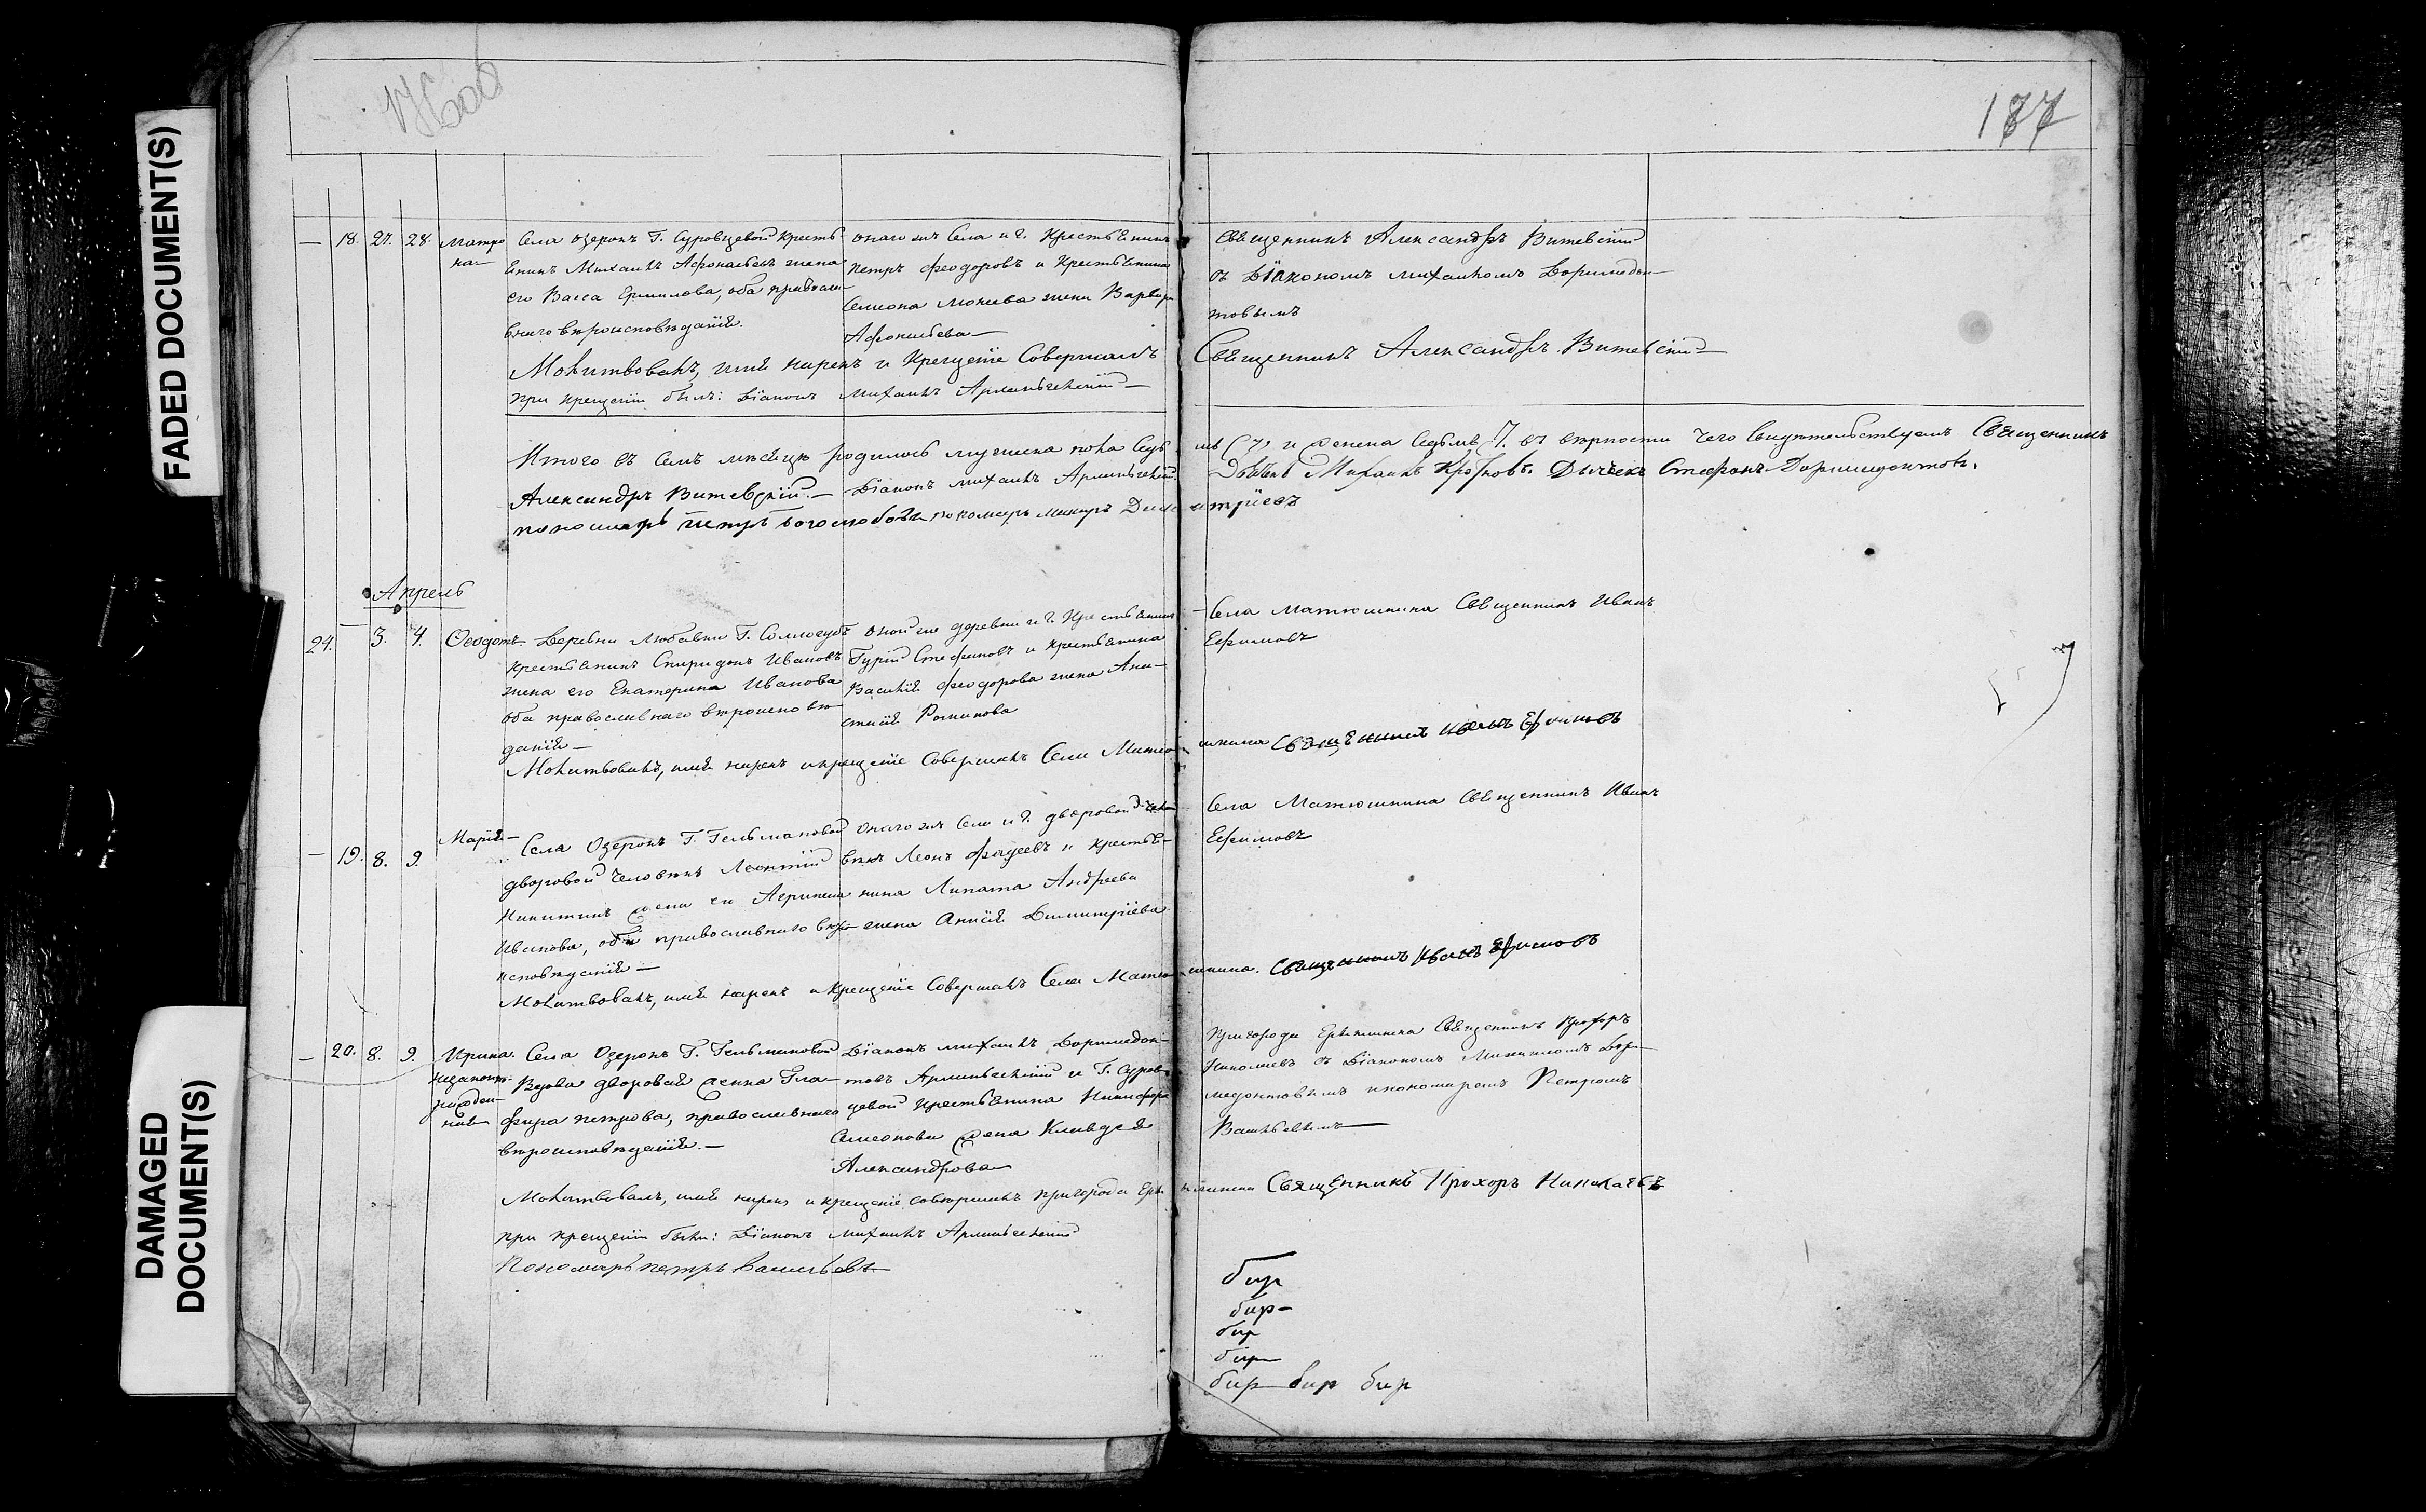 FADED DOCUMENT(S)
DAMAGED DOCUMENT(S)
177
— 18. 27. 28. Матро
на
Села Озерокъ Г. Суровцевой кресть
янинъ Михаилъ Афонасьевъ жена
его Васса Ермилова, оба православ
наго вѣроисповѣданія.
онаго же Села и Г. Крестьянинъ
Петръ Феодоровъ и Крестьянина
Семиона жена Варвара
Афонасьева
Священникъ Александръ Витевскій
съ Діакономъ Михаиломъ Доримедон
товымъ
Молитвовалъ, имя нарекъ и Крещеніе Совершалъ Священникъ Александръ Витевскій
при крещеніи былъ: Діаконъ Михаилъ
Итого въ семъ мѣсяцѣ родилось мужеска пола седмь (7) и женска седмь 7. въ вѣрности чего свидетельствуемъ Священникъ
Александръ Витевскій. — Діаконъ Михаилъ Дьячекъ Стефанъ Доримедонтовъ.
пономарь Петръ пономарь Димитріевъ
Апрель
24. — 3. 4. Феодотъ
Деревни Любавки Г.
крестьянинъ Спиридонъ Ивановъ
жена его Екатерина Иванова
оба православнаго вѣроисповѣ
данія —
оной же деревни и Г. Крестьянинъ
Гурій Стефановъ и крестьянина
Василія Феодорова жена Ана
стасія Романова
Села Матюшкина Священникъ Иванъ
Ефимовъ
Молитвовалъ, имя нарекъ и крещеніе Совершалъ Села Матюшкина Священникъ Иванъ Ефимовъ
— 19. 8. 9. Марія
Села Озерокъ Г. Гельмановой
дворовой человекъ Леонтій
Никитинъ жена его Агрипина
Иванова, оба православнаго вѣро
исповѣданія —
онаго же Села и Г. дворовой чело
вѣкъ Леонъ Фадеевъ и крестья
нина Липата Андреева
жена Анисія Димитріева
Села Матюшкина Священникъ Иванъ
Ефимовъ
Молитвовалъ, имя нарекъ и Крещеніе Совершалъ Села Матюшкина. Священникъ Иванъ Ефимовъ
— 20. 8. 9. Ирина
незаконно
рожден
ная
Села Озерокъ Г. Гельмановой
Вдова дворовая женка Гла
фира Петрова, православнаго
вѣроисповѣданія. —
Діаконъ Михаилъ Доримедон
товъ и Г. Суров
цевой крестьянина Никифора
Семионова жена Клавдея
Александрова
Пригорода Ерыклинска Священникъ Прохоръ
Николаевъ съ Діакономъ Михаиломъ Дори
медонтовымъ и пономаремъ Петромъ
Васильевымъ
Молитвовалъ, имя нарекъ и крещеніе совершалъ пригорода Ерыклинска Священникъ Прохоръ Николаевъ
при крещеніи были: Діаконъ Михаилъ
Пономарь Петръ Васильевъ
бир
бир
бир
бир
бир бир бир